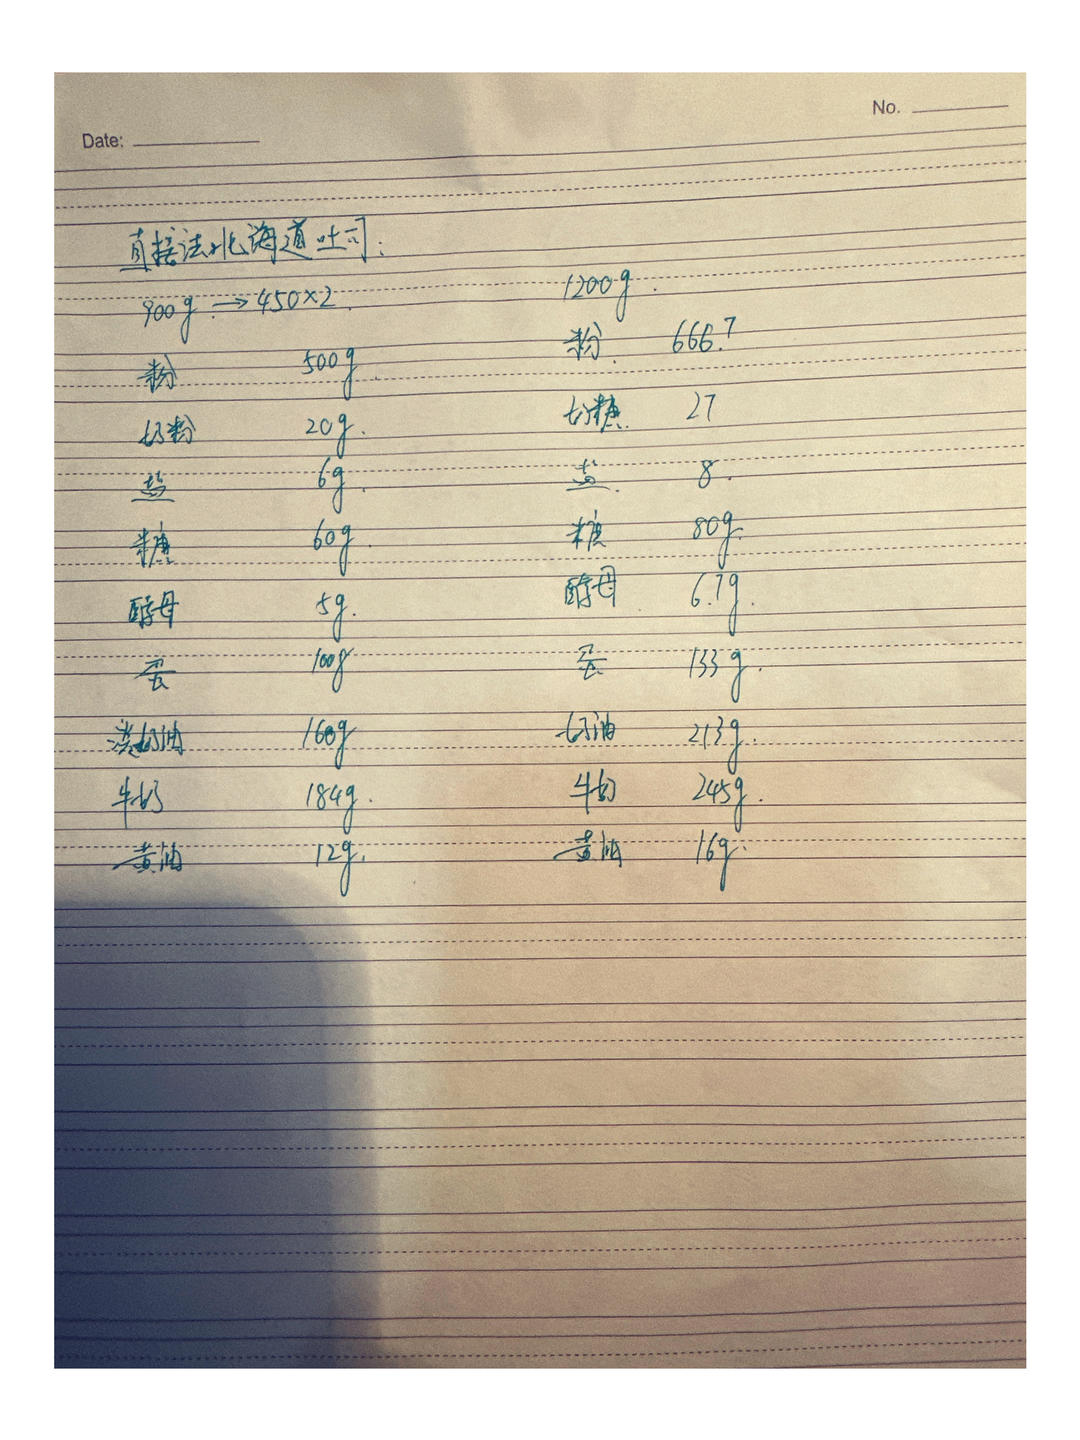 No.
Date:
直接法北海道吐司:
900g → 450×2.
1200g.
粉 500g.
粉. 666.7
奶粉 20g.
奶糖. 27
盐 6g.
盐. 8.
糖 60g.
糖 80g.
酵母 5g.
酵母 6.7g.
蛋 100g
蛋 133g.
淡奶油 160g
奶油 213g.
牛奶 184g.
牛奶 245g.
黄油 12g.
黄油 16g.